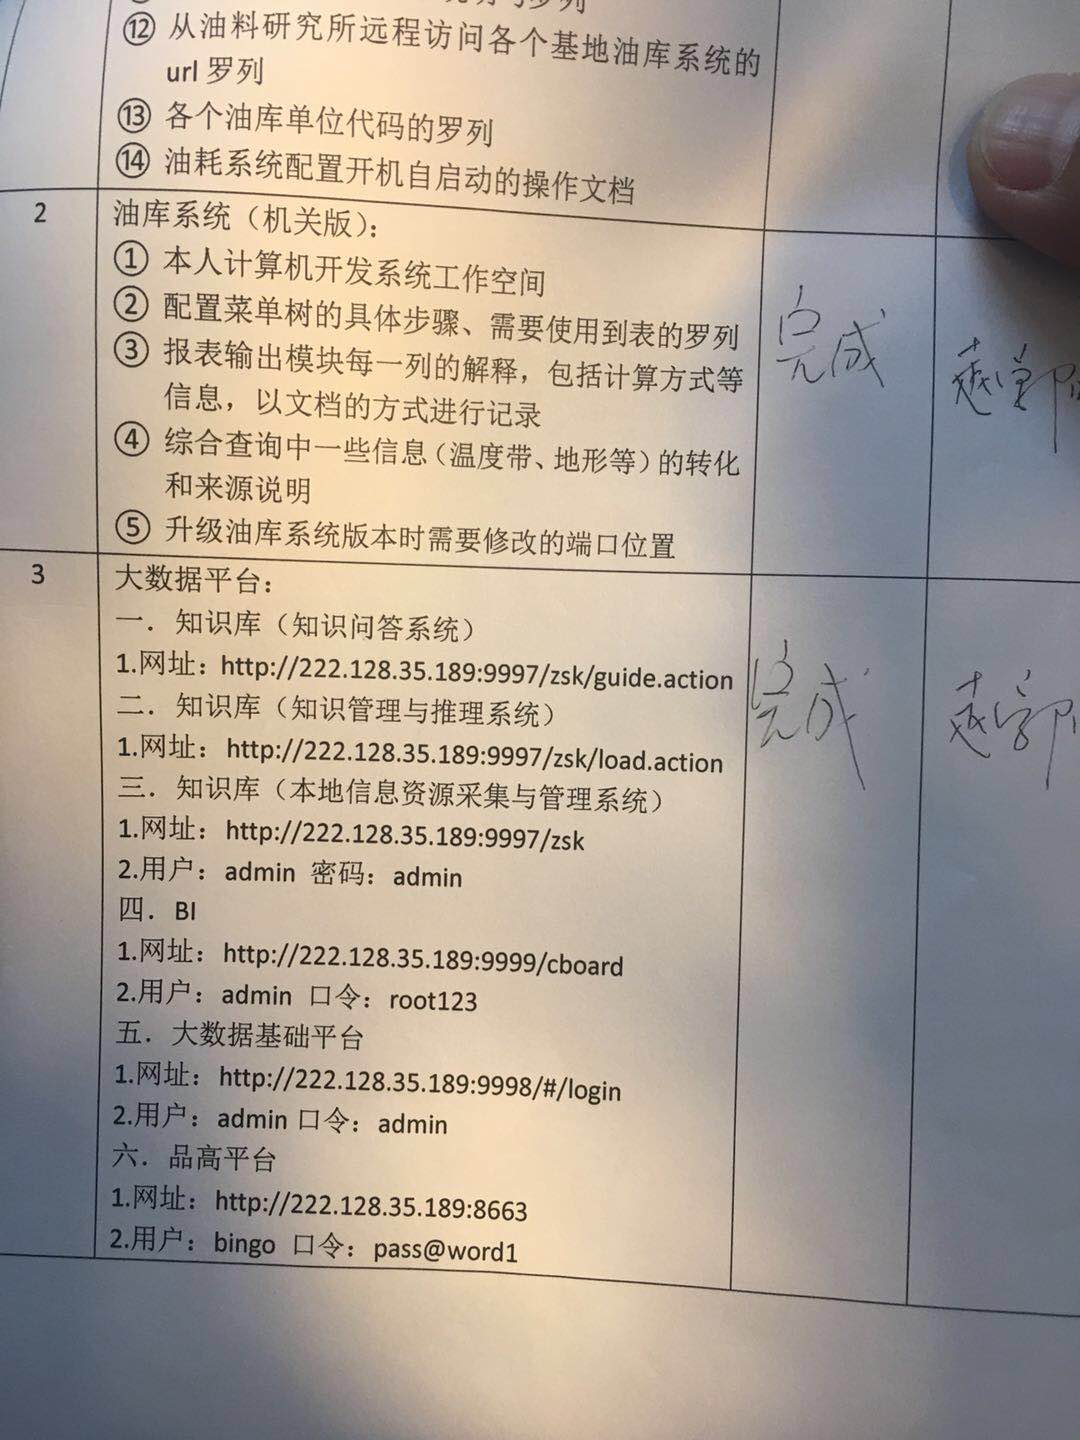 ⑫ 从油料研究所远程访问各个基地油库系统的
url 罗列
⑬ 各个油库单位代码的罗列
⑭ 油耗系统配置开机自启动的操作文档
2
油库系统（机关版）：
① 本人计算机开发系统工作空间
② 配置菜单树的具体步骤、需要使用到表的罗列
③ 报表输出模块每一列的解释，包括计算方式等
信息，以文档的方式进行记录
④ 综合查询中一些信息（温度带、地形等）的转化
和来源说明
⑤ 升级油库系统版本时需要修改的端口位置
完成
3
大数据平台：
一．知识库（知识问答系统）
1.网址：http://222.128.35.189:9997/zsk/guide.action
二．知识库（知识管理与推理系统）
1.网址：http://222.128.35.189:9997/zsk/load.action
三．知识库（本地信息资源采集与管理系统）
1.网址：http://222.128.35.189:9997/zsk
2.用户：admin 密码：admin
四．BI
1.网址：http://222.128.35.189:9999/cboard
2.用户：admin 口令：root123
五．大数据基础平台
1.网址：http://222.128.35.189:9998/#/login
2.用户：admin 口令：admin
六．品高平台
1.网址：http://222.128.35.189:8663
2.用户：bingo 口令：pass@word1
完成